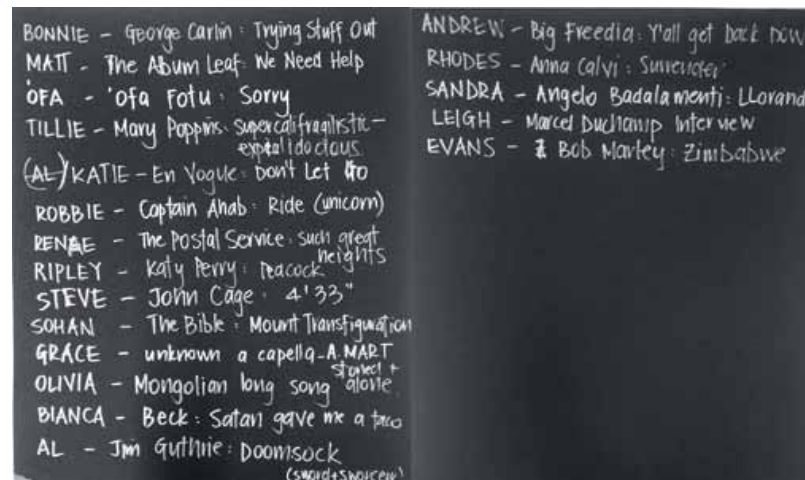 BONNIE - George Carlin: Trying Stuff Out
MATT - The Abum Leaf: We Need Help
'OFA - 'Ofa Fotu: Sorry
TILLIE - Mary Poppins: supercalifragilistic-
expialidocious
(AL) KATIE - En Vogue: Don't Let Go
ROBBIE - Captain Ahab: Ride (unicorn)
RENAE - The Postal Service: such great
heights
RIPLEY - Katy Perry: Peacock
STEVE - John Cage: 4'33"
SOHAN - The Bible: Mount Transfiguration
GRACE - unknown a capella - A. MART
stoned +
alone
OLIVIA - Mongolian long song
BIANCA - Beck: Satan gave me a taco
AL - Jim Guthrie: Doomsock
(sword + sworcery)
ANDREW - Big Freedia: Y'all get back now
RHODES - Anna Calvi: Surrender
SANDRA - Angelo Badalamenti: Llorando
LEIGH - Marcel Duchamp Interview
EVANS - Bob Marley: Zimbabwe